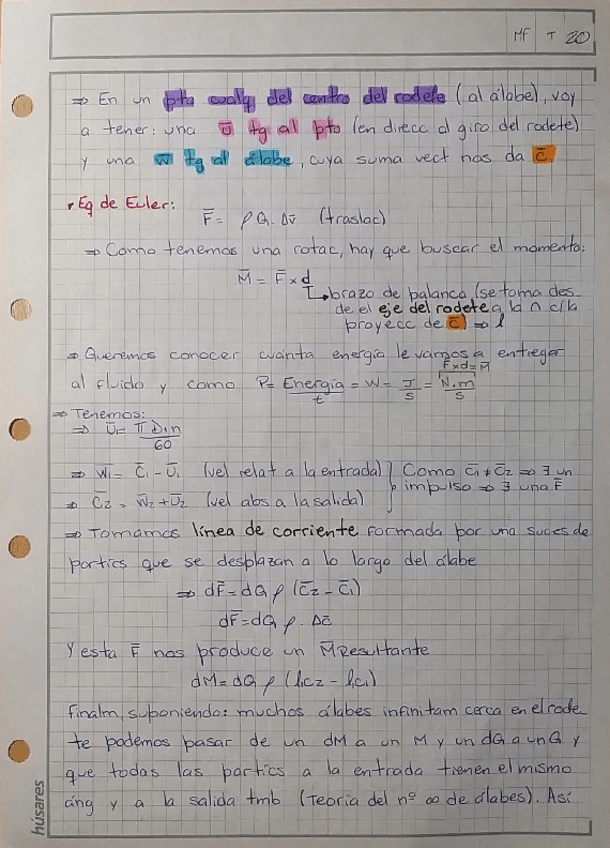 MF T 20
⇒ En un pto cualq del centro del rodete (al álabe), voy
a tener: una ū tg al pto (en direcc al giro del rodete)
y una w̄ tg al álabe, cuya suma vect nos da c̄
• Eq de Euler:
F̄ = ρQ. Δv̄ (traslac)
⇒ Como tenemos una rotac, hay que buscar el momento:
M̄ = F̄ x d
↳ brazo de palanca (se toma des
de el eje del rodete a la ∩ c/la
proyecc de c̄) ⇒ l
⇒ Queremos conocer cuánta energía le vamos a entregar
al fluido y como P = Energía/t = W = J/s = N.m/s
F x d = M̄
⇒ Tenemos:
⇒ Ū1 = π D1 n/60
⇒ W̄1 = C̄1 - Ū1 (vel relat a la entrada) } Como C̄1 ≠ C̄2 ⇒ ∃ un
⇒ C̄2 = W̄2 + Ū2 (vel abs a la salida) } impulso ⇒ ∃ una F̄
⇒ Tomamos línea de corriente formada por una suces de
partics que se desplazan a lo largo del álabe
⇒ dF̄ = dQ ρ (C̄2 - C̄1)
dF̄ = dQ ρ . Δc̄
Y esta F̄ nos produce un M̄ Resultante
dM = dQ ρ (l2c2 - l1c1)
Finalm, suponiendo: muchos álabes infinitam cerca en el rode
te podemos pasar de un dM a un M y un dQ a un Q y
que todas las partics a la entrada tienen el mismo
áng y a la salida tmb (Teoría del nº ∞ de álabes). Así
húsares